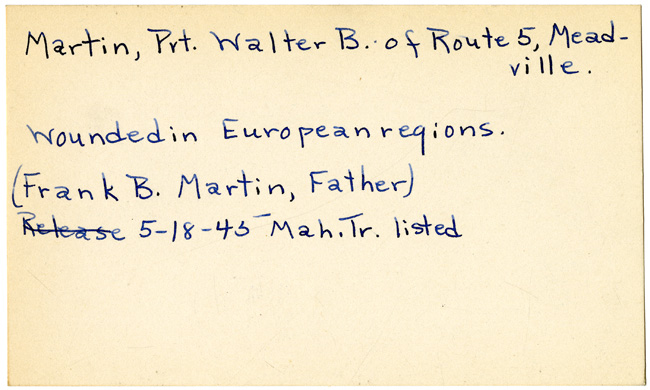 Martin, Pvt. Walter B. of Route 5, Mead-
ville.
Wounded in European regions.
(Frank B. Martin, Father)
Release 5-18-45 Mah. Tr. listed